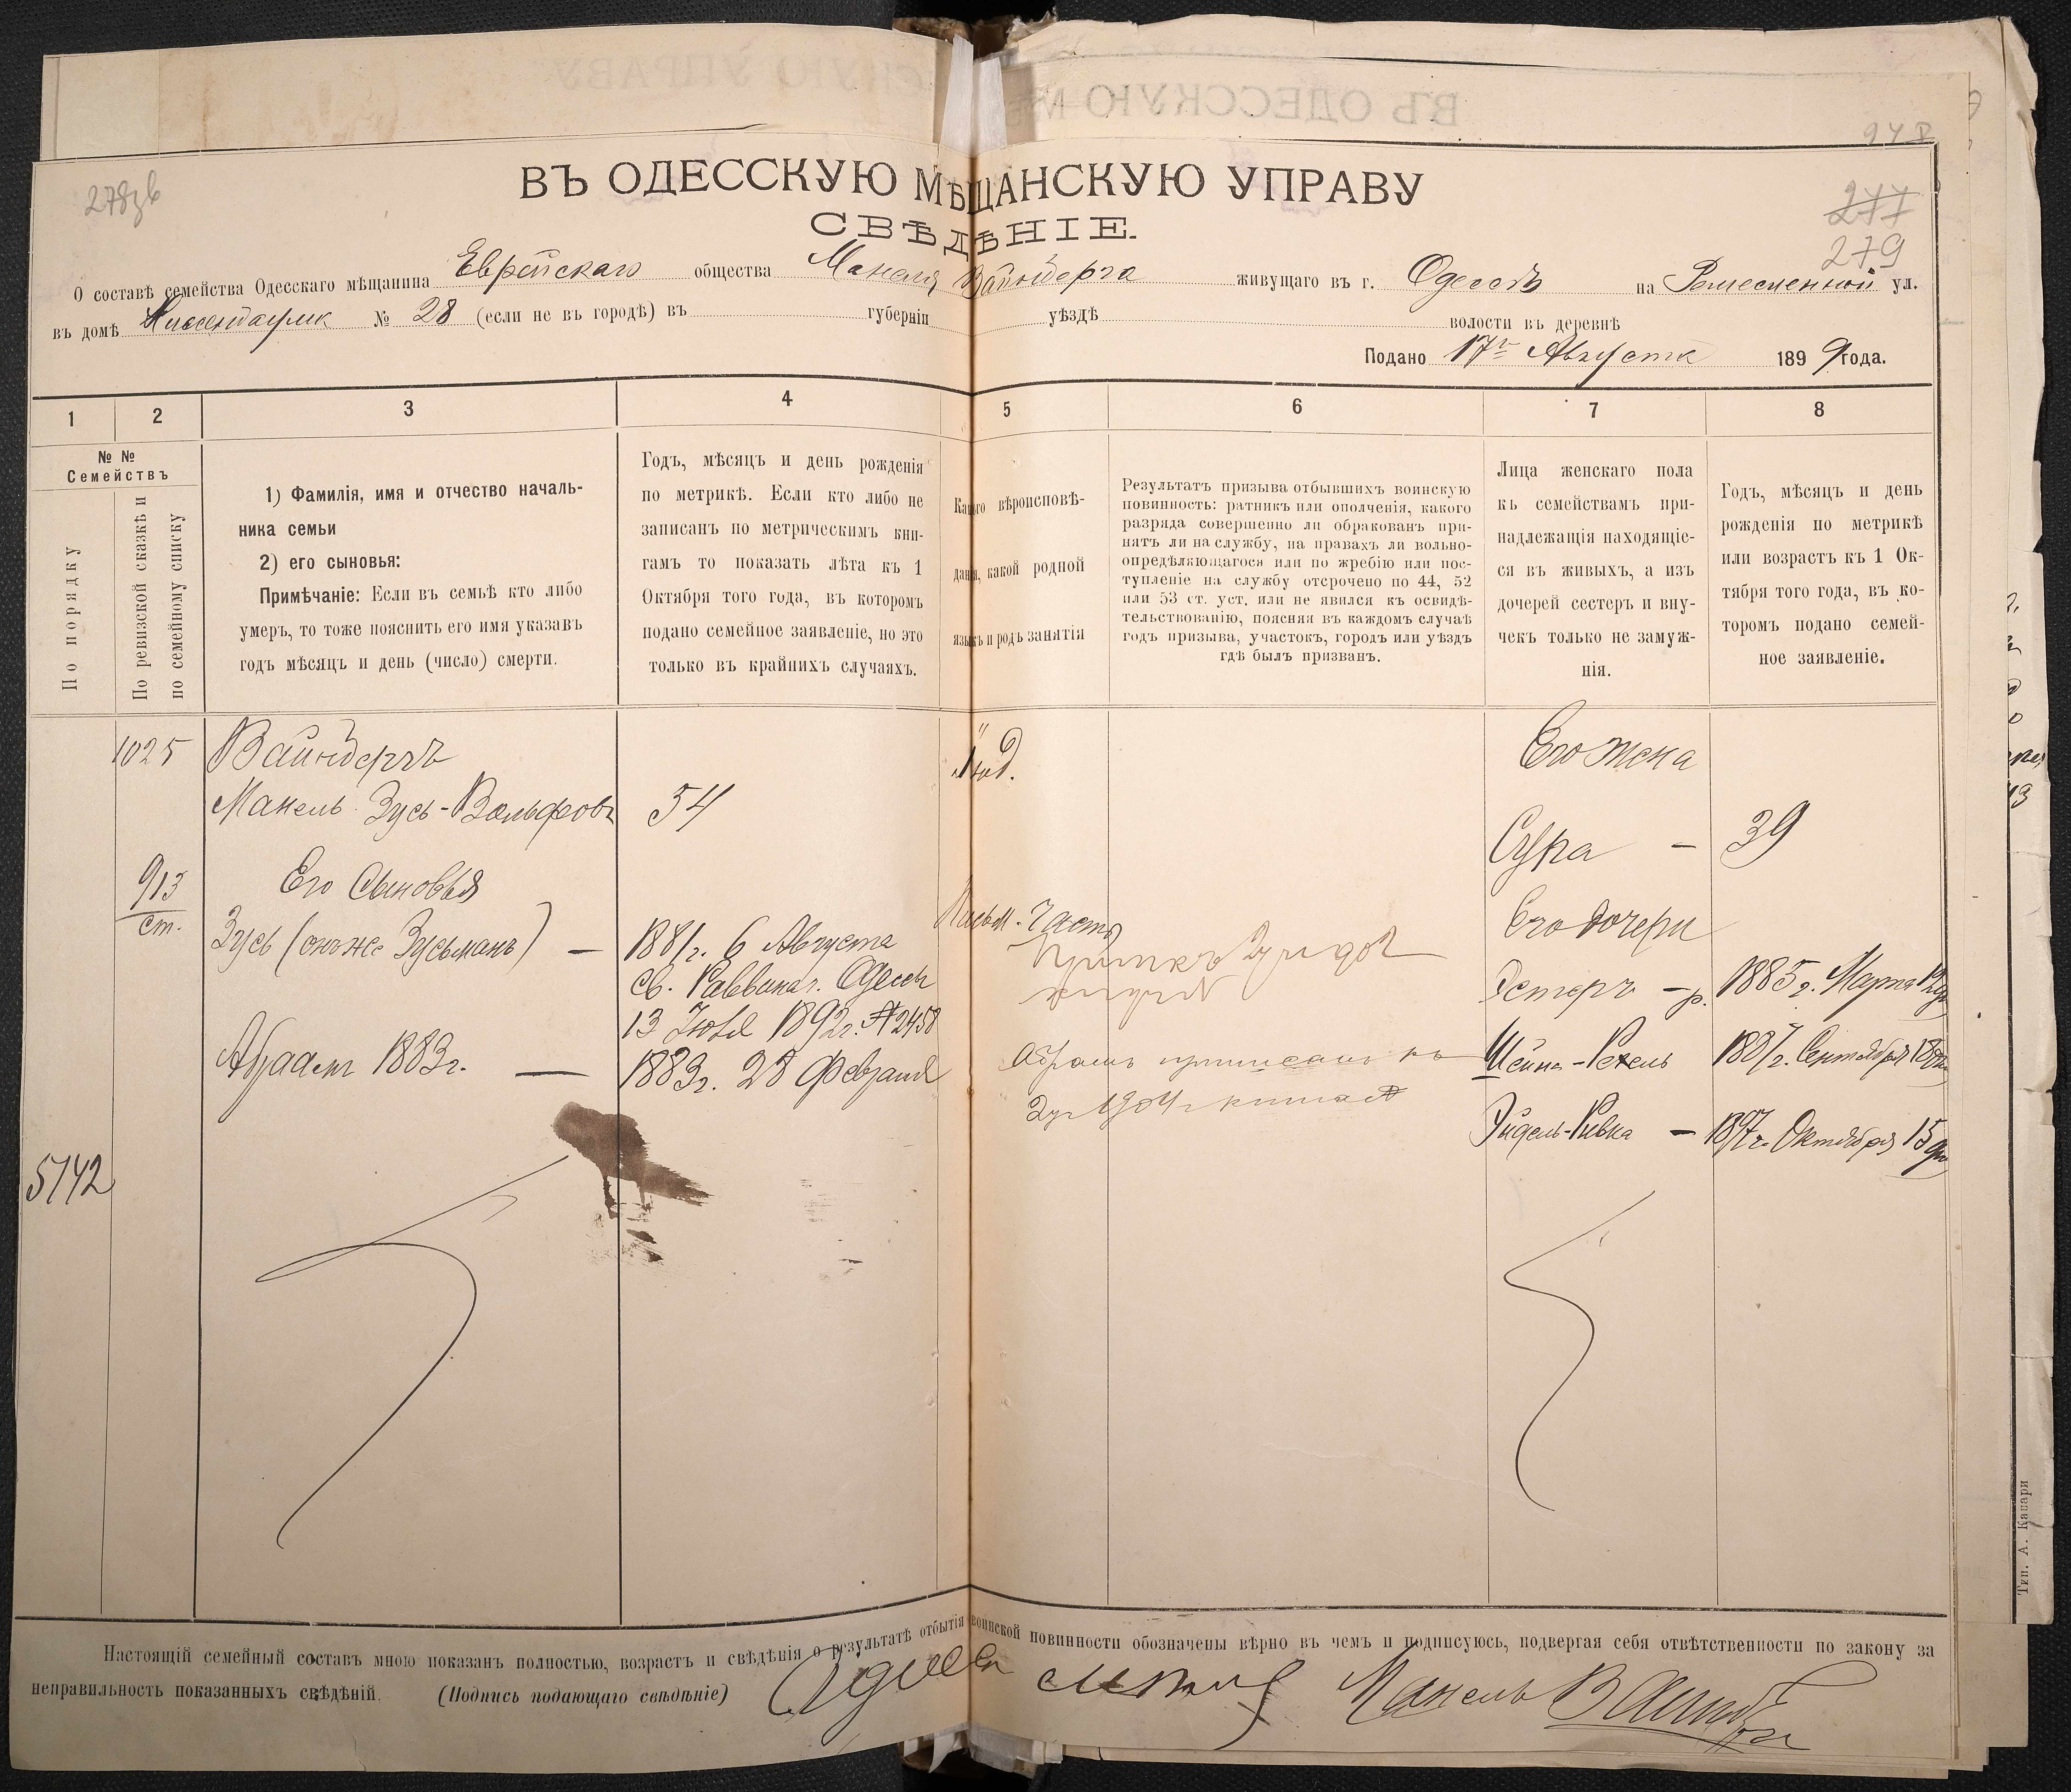 ВЪ ОДЕССКУЮ МѢЩАНСКУЮ УПРАВУ
СВѢДѢНІЕ.
277
279
О составѣ семейства Одесскаго мѣщанина Еврейскаго общества Манеля Вайнберга живущаго въ г. Одессѣ на Ремесленной ул.
въ домѣ № 28 (если не въ городѣ) въ губерніи уѣздѣ волости въ деревнѣ
Подано 17го Августа 1899 года.
1 2 3 4 5 6 7 8
№ №
Семействъ
По порядку
По ревизской сказкѣ и
по семейному списку
1) Фамилія, имя и отчество началь-
ника семьи
2) его сыновья:
Примѣчаніе: Если въ семьѣ кто либо
умеръ, то тоже пояснить его имя указавъ
годъ мѣсяцъ и день (число) смерти.
Годъ, мѣсяцъ и день рожденія
по метрикѣ. Если кто либо не
записанъ по метрическимъ кни-
гамъ то показать лѣта къ 1
Октября того года, въ которомъ
подано семейное заявленіе, но это
только въ крайнихъ случаяхъ.
Какого вѣроисповѣ-
данія, какой родной
языкъ и родъ занятія
Результатъ призыва отбывшихъ воинскую
повинность: ратникъ или ополченія, какого
разряда совершенно ли обракованъ при-
нятъ ли на службу, на правахъ ли вольно-
опредѣляющагося или по жребію или пос-
тупленіе на службу отсрочено по 44, 52
или 53 ст. уст. или не явился къ освидѣ-
тельствованію, поясняя въ каждомъ случаѣ
годъ призыва, участокъ, городъ или уѣздъ
гдѣ былъ призванъ.
Лица женскаго пола
къ семействамъ при-
надлежащія находящіе-
ся въ живыхъ, а изъ
дочерей сестеръ и вну-
чекъ только не замуж-
нія.
Годъ, мѣсяцъ и день
рожденія по метрикѣ
или возрастъ къ 1 Ок-
тября того года, въ ко-
торомъ подано семей-
ное заявленіе.
1025 Вайнбергъ Іюд. Его жена
Манель Зусь-Вольфовъ 54
Сура — 39
913
ст.
Его Сыновья Его дочери
Зусь (онъ же Зусьманъ) — 1881г. 6 Августа
св. Раввина г. Одессы
13 Іюля 1892г. № 2458
Эстеръ — р. 1885 г. Марта
Абрамъ 1883г. — 1883г. 28 Февраля
Абрамъ приписанъ къ
1904 г
Шейна-Рехель 1887г. Сентября 18
Эйдель-Ривка — 1897г. Октября 15 дня
5142
Настоящій семейный составъ мною показанъ полностью, возрастъ и свѣдѣнія о результатѣ отбытія воинской повинности обозначены вѣрно въ чемъ и подписуюсь, подвергая себя отвѣтственности по закону за
неправильность показанныхъ свѣдѣній. (Подпись подающаго свѣдѣніе) Одесса Манель
Тип. А. Капари